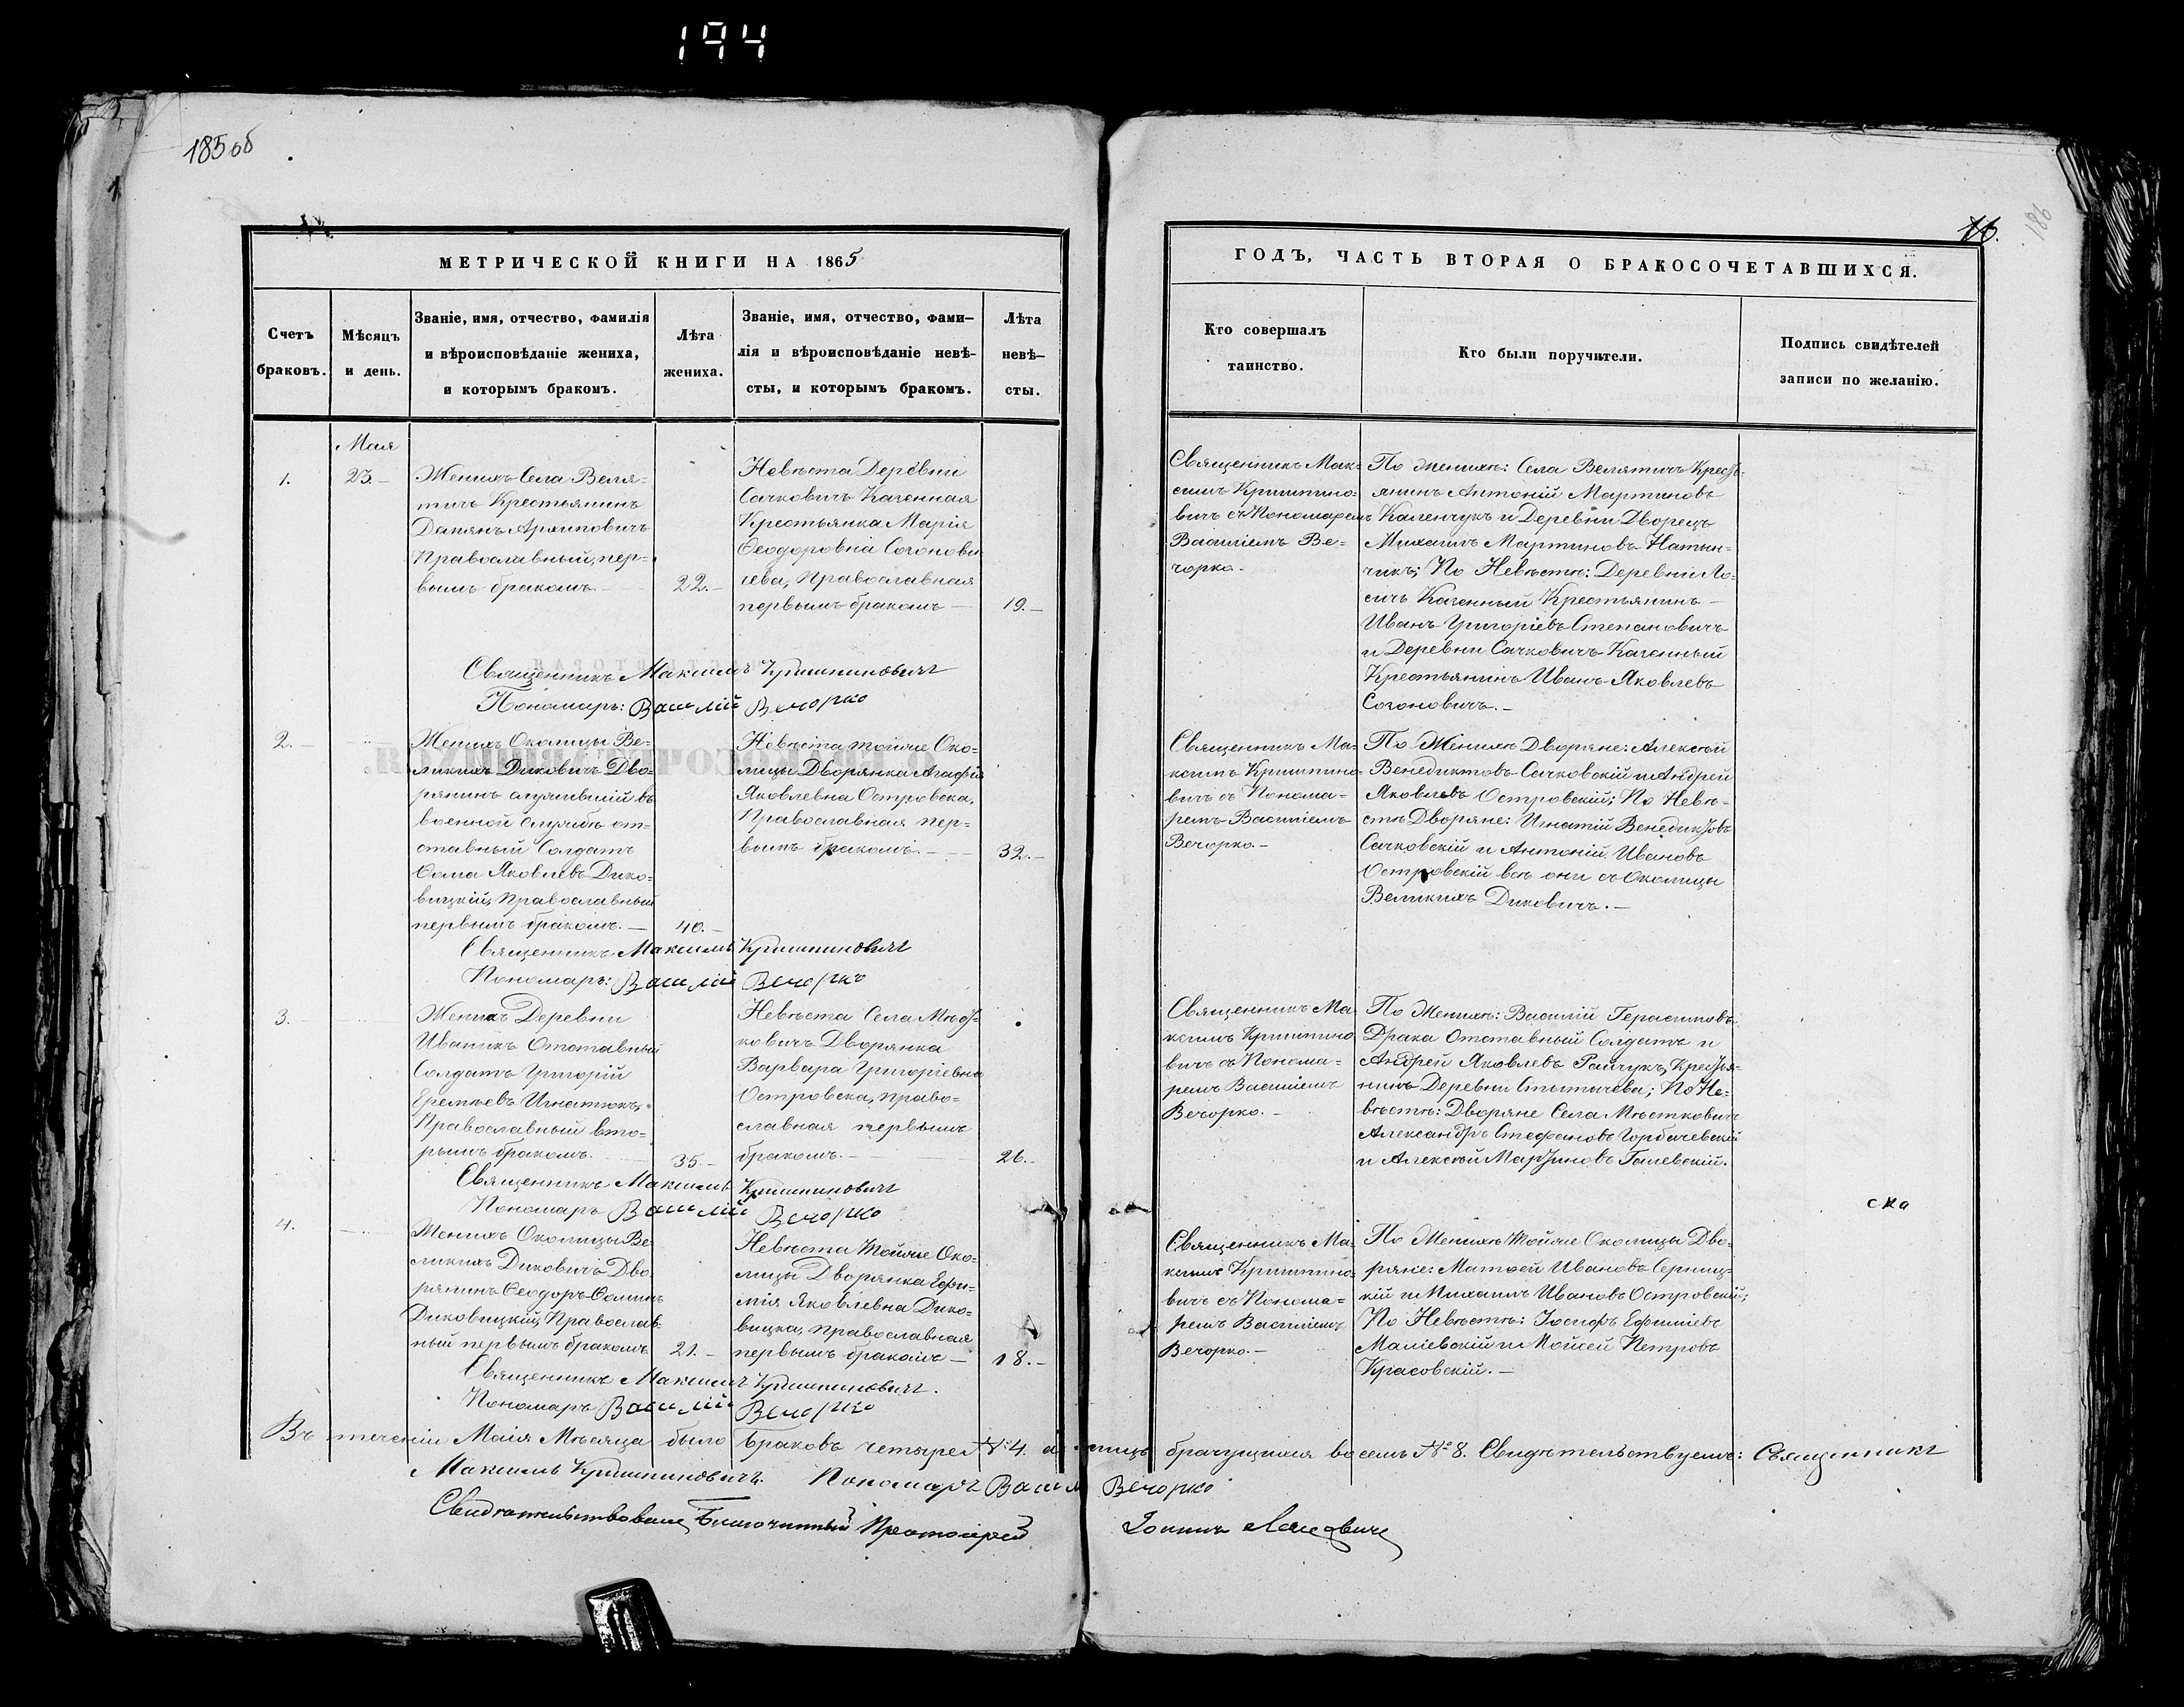 194
185 об
МЕТРИЧЕСКОЙ КНИГИ НА 1865
Счетъ браковъ.
Мѣсяцъ и день.
Званіе, имя, отчество, фамилія
и вѣроисповѣданіе жениха,
и которымъ бракомъ.
Лѣта жениха.
Званіе, имя, отчество, фами-
лія и вѣроисповѣданіе невѣ-
сты, и которымъ бракомъ.
Лѣта
невѣ-
сты.
Мая
1.
23.
Женихъ Села Веля-
тичъ Крестьянинъ
Даміянъ Архиповичъ
Православный, пер-
вымъ бракомъ.
22.
Невѣста Деревни
Сачковичъ Казенная
Крестьянка Марія
Ѳеодоровна Согонови-
чева, Православная
первымъ бракомъ
19.
Священникъ Максимъ Криштиновичъ
Пономарь: Василій Вечорко
2.
Женихъ Околицы Ве-
ликихъ Диковичъ Дво-
рянинъ служившій въ
военной службѣ от-
ставный Солдатъ
Ѳома Яковлевъ Дико-
вицкій, Православный
первымъ бракомъ.
40.
Невѣста тойже Око-
лицы Дворянка Агафія
Яковлевна Островска,
Православная пер-
вымъ бракомъ.
32.
Священникъ Максимъ Криштиновичъ
Пономарь: Василій Вечорко
3.
Женихъ Деревни
Иваникъ Отставный
Солдатъ Григорій
Еремѣевъ Игнатюкъ,
Православный вто-
рымъ бракомъ.
35.
Невѣста Села Мѣст-
ковичъ Дворянка
Варвара Григоріевна
Островска, право-
славная первымъ
бракомъ.
26.
Священникъ Максимъ Криштиновичъ
Пономарь Василій Вечорко
4.
Женихъ Околицы Ве-
ликихъ Диковичъ Дво-
рянинъ Ѳеодоръ Ѳоминъ
Диковицкій, Православ-
ный первымъ бракомъ
21.
Невѣста Тойже Око-
лицы Дворянка Ефи-
мія Яковлевна Дико-
вицка, православная
первымъ бракомъ
18.
Священникъ Максимъ Криштиновичъ.
Пономарь Василій Вечорко
186
16.
ГОДЪ, ЧАСТЬ ВТОРАЯ О БРАКОСОЧЕТАВШИХСЯ.
Кто совершалъ
таинство.
Кто были поручители.
Подпись свидѣтелей
записи по желанію.
Священникъ Мак-
симъ Криштино-
вичъ съ Пономаремъ
Василіемъ Ве-
чорко.
По женихѣ: Села Велятичъ Кресть-
янинъ Антоній Мартиновъ
Каленчукъ и Деревни Дворецъ
Михаилъ Мартиновъ Натын-
чикъ; По Невѣстѣ: Деревни Ло-
сичъ Казенный Крестьянинъ
Иванъ Григоріевъ Степановичъ
и Деревни Сачковичъ Казенный
Крестьянинъ Иванъ Яковлевъ
Согоновичъ.
Священникъ Ма-
ксимъ Криштино-
вичъ съ Понома-
ремъ Василіемъ
Вечорко.
По Женихѣ Дворяне: Алексѣй
Венедиктовъ Сачковскій и Андрей
Яковлевъ Островскій; По Невѣ-
стѣ Дворяне: Игнатій Венедиктовъ
Сачковскій и Антоній Ивановъ
Островскій всѣ они съ Околицы
Великихъ Диковичъ.
Священникъ Ма-
ксимъ Криштино-
вичъ съ Понома-
ремъ Василіемъ
Вечорко.
По Женихѣ: Василій Герасимовъ
Драка Отставный Солдатъ и
Андрей Яковлевъ Райчукъ, Крестья-
нинъ Деревни Стытычева; По Не-
вѣстѣ: Дворяне Села Мѣстковичъ
Александръ Стефановъ Горбачевскій
и Алексѣй Мартиновъ Галевскій.
ска
Священникъ Ма-
ксимъ Криштино-
вичъ съ Понома-
ремъ Василіемъ
Вечорко.
По Женихѣ Тойже Околицы Дво-
ряне: Матѳей Ивановъ Серниц-
кій и Михаилъ Ивановъ Островскій;
По Невѣстѣ: Іосифъ Ефиміевъ
Маліевскій и Мойсей Петровъ
Красовскій.
Въ теченіи Маія Мѣсяца было браковъ четыре №4. а лицъ брачущихся восемь №8. Свидѣтельствуемъ: Священникъ
Максимъ Криштиновичъ. Пономарь Василій Вечорко
Свидѣтельствовалъ Благочинный Протоіерей Іоаннъ